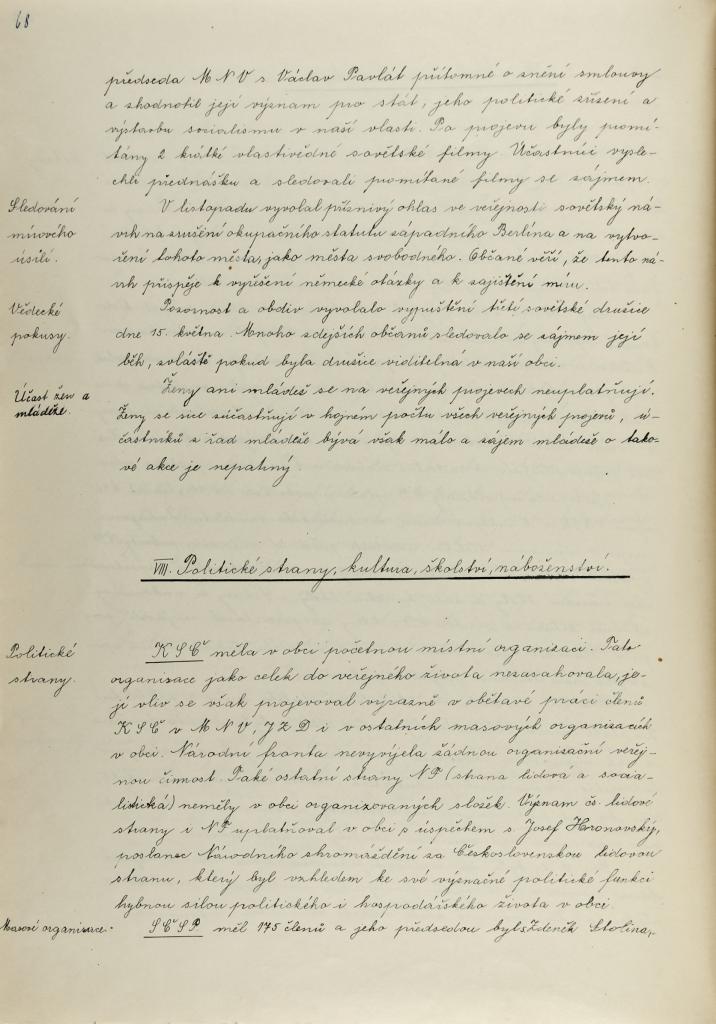 68
předseda MNV s. Václav Pavlát přítomné o znění smlouvy
a zhodnotil její význam pro stát, jeho politické zřízení a
výstavbu socialismu v naší vlasti. Po projevu byly promí-
tány 2 krátké vlastivědné sovětské filmy. Účastníci vysle-
chli přednášku a sledovali promítané filmy se zájmem.
Sledování
mírového
úsilí.
V listopadu vyvolal příznivý ohlas ve veřejnosti sovětský ná-
vrh na zrušení okupačního statutu západního Berlína a na vytvo-
ření tohoto města, jako města svobodného. Občané věří, že tento ná-
vrh přispěje k vyřešení německé otázky a k zajištění míru.
Vědecké
pokusy.
Pozornost a obdiv vyvolalo vypuštění třetí sovětské družice
dne 15. května. Mnoho zdejších občanů sledovalo se zájmem její
běh, zvláště pokud byla družice viditelná v naší obci.
Účast žen a
mládeže.
Ženy ani mládež se na veřejných projevech neuplatňují.
Ženy se sice zúčastňují v hojném počtu všech veřejných projevů, ú-
častníků z řad mládeže bývá však málo a zájem mládeže o tako-
vé akce je nepatrný.
VIII. Politické strany, kultura, školství, náboženství.
Politické
strany.
KSČ měla v obci početnou místní organizaci. Tato
organizace jako celek do veřejného života nezasahovala, je-
jí vliv se však projevoval výrazně v obětavé práci členů
KSČ v MNV, JZD i v ostatních masových organizacích
v obci. Národní fronta nevyvíjela žádnou organizační veřej-
nou činnost. Také ostatní strany NF (strana lidová a socia-
listická) neměly v obci organizovaných složek. Význam čs. lidové
strany i NF uplatňoval v obci s úspěchem s. Josef Hronovský,
poslanec Národního shromáždění za Československou lidovou
stranu, který byl vzhledem ke své význačné politické funkci
hybnou silou politického i hospodářského života v obci.
Masové organizace.
SČSP měl 175 členů a jeho předsedou byl s. Zdeněk Stolina,